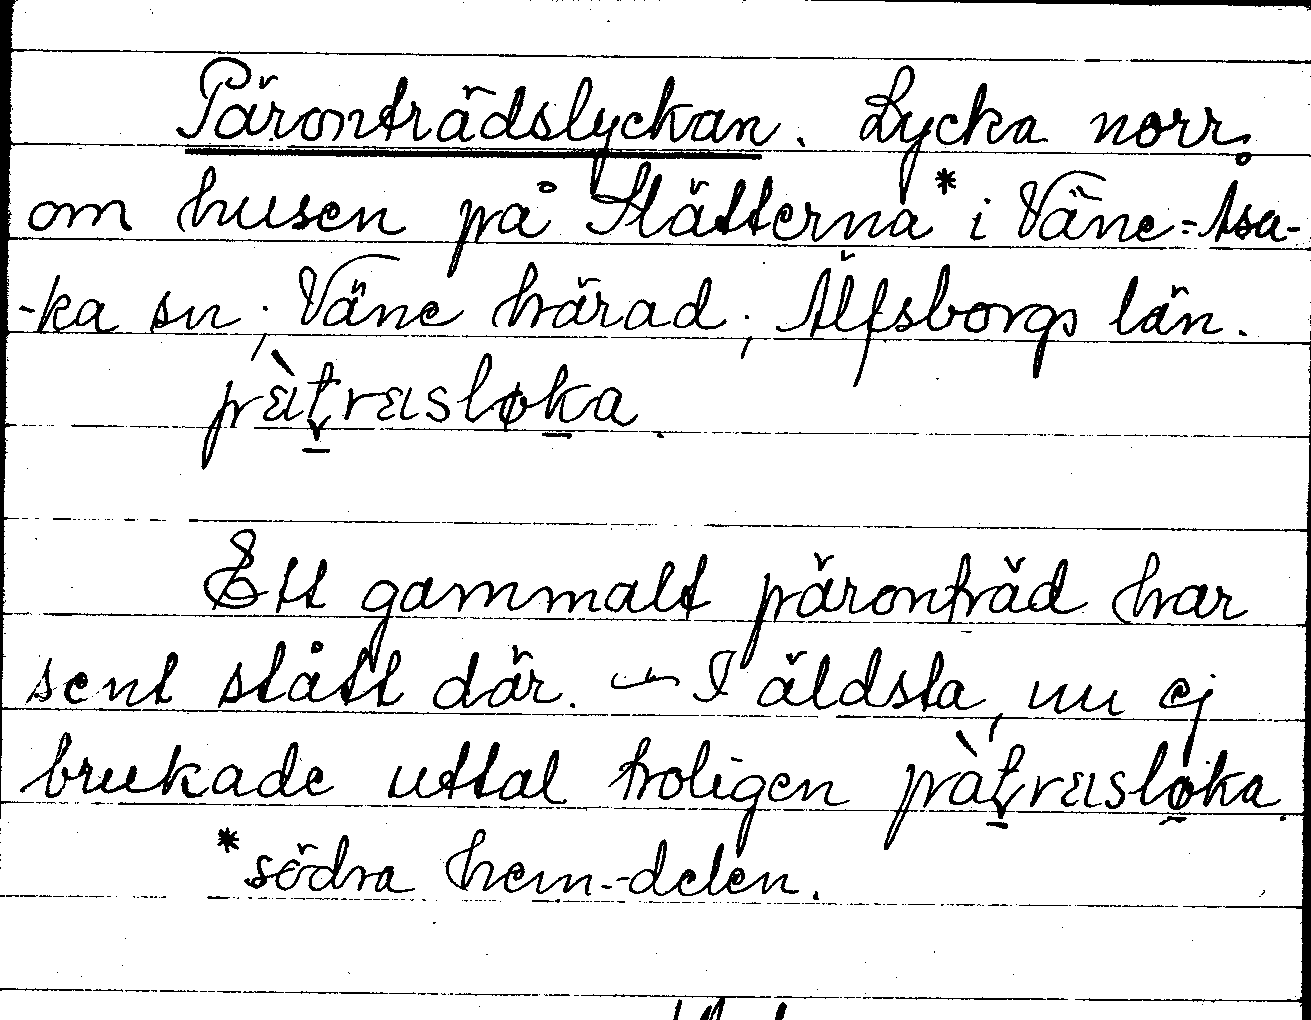 Päronträdslyckan. Lycka norr
om husen på Slätterna* i Väne=Åsa-
-ka sn; Väne härad; Älfsborgs län.
Ett gammalt päronträd har
sent stått där. — I äldsta, nu ej
brukade uttal troligen
*södra hem--delen.